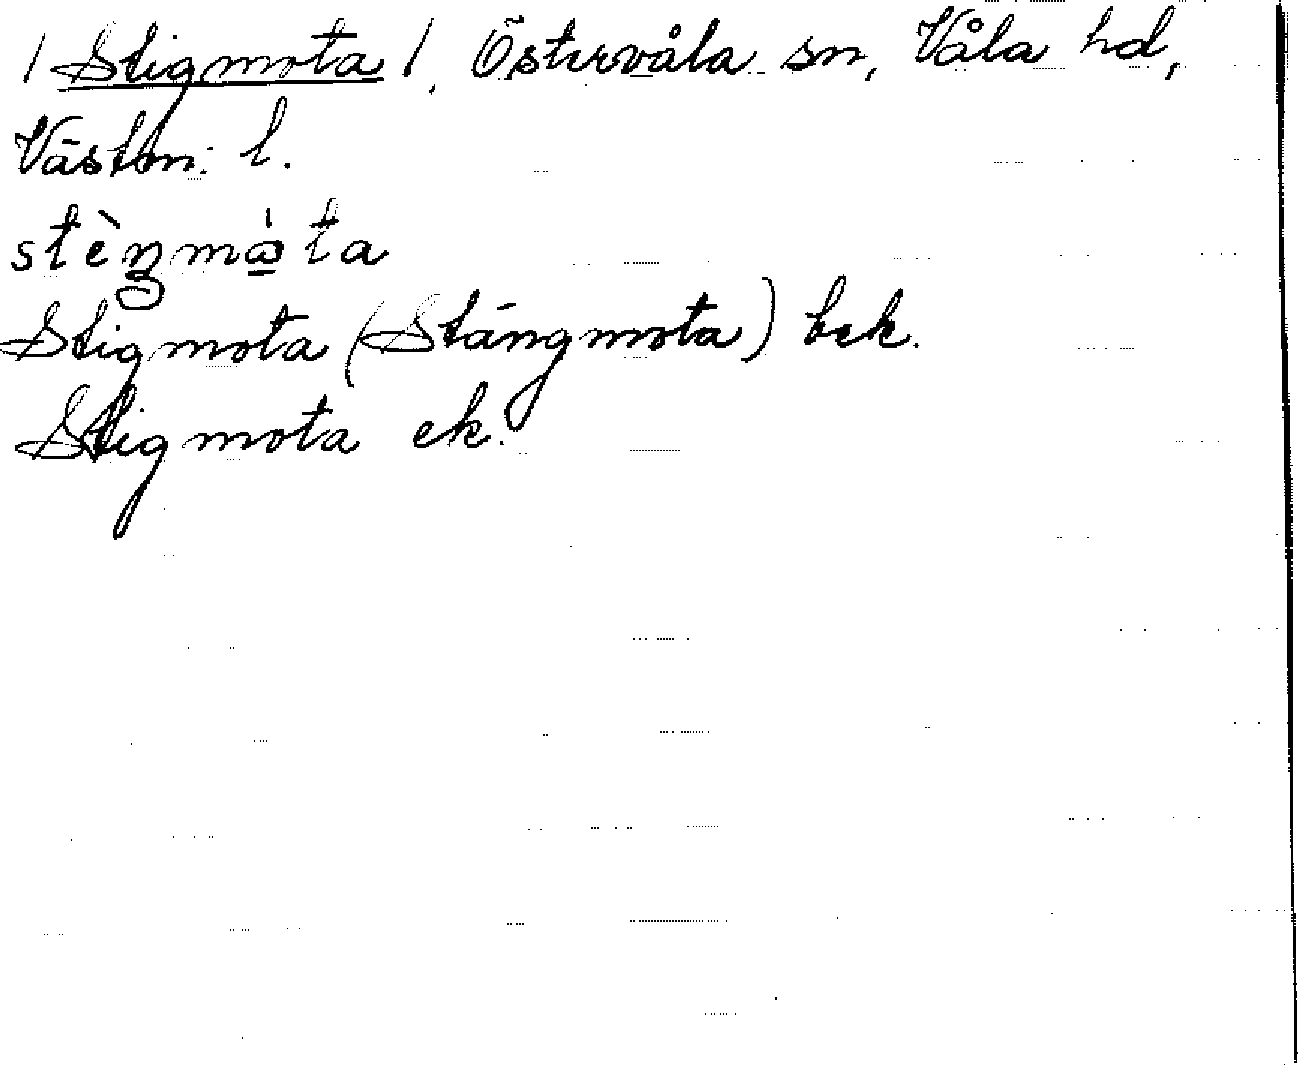 /Stigmota/, Östervåla sn, Våla hd,
Västm. l.
stèŋmà̱ta
Stigmota (Stängmota) bek.
Stigmota ek.